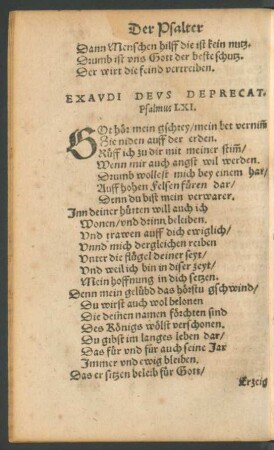 Der Psalter
Dann Menschen hilff die ist kein nutz/
Drumb ist vns Gott der beste schutz/
Der wirt die feind vertreiben.
EXAVDI DEVS DEPRECAT.
Psalmus LXI.
GOt hör mein gschrey/mein bet vernim̃
Hie niden auff der erden.
Rüff ich zu dir mit meiner stim̃/
Wenn mir auch angst wil werden.
Drumb wollest mich bey einem har/
Auff hohen Felsen füren dar/
Denn du bist mein verwarer.
Inn deiner hütten will auch ich
Wonen/vnd drinn bleiben.
Vnd trawen auff dich ewiglich/
Vnnd mich dergleichen reiben
Vnter die flügel deiner seyt/
Vnd weil ich bin in diser zeyt/
Mein hoffnung in dich setzen.
Denn mein gelübd das hörstu gschwind/
Du wirst auch wol belonen
Die deinen namen förchten sind
Des Königs wölst verschonen.
Du gibst im langes leben dar/
Das für vnd für auch seine Jar
Immer vnd ewig bleiben.
Das er sitzen beleib für Gott/
Erzeig